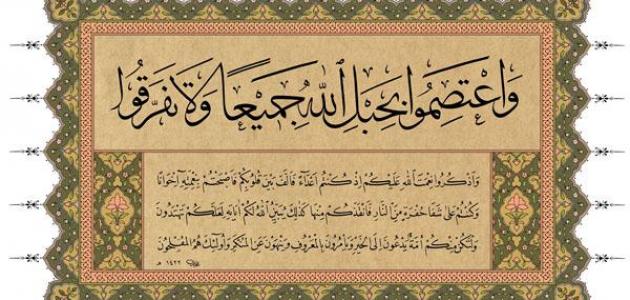 وَاعْتَصِمُوا بِحَبْلِ ٱللَّهِ جَمِيْعًا وَلَا تَفَرَّقُوا
وَاذْكُرُوا نِعْمَتَ اللهِ عَلَيْكُمْ إِذْ كُنْتُمْ أَعْدَآءً فَأَلَّفَ بَيْنَ قُلُوبِكُمْ فَأَصْبَحْتُمْ بِنِعْمَتِهِ إِخْوَانًا
وَكُنْتُمْ عَلَىٰ شَفَا حُفْرَةٍ مِنَ النَّارِ فَأَنْقَذَكُمْ مِنْهَا كَذَلِكَ يُبَيِّنُ اللهُ لَكُمْ آيَاتِهِ لَعَلَّكُمْ تَهْتَدُونَ
وَلْتَكُنْ مِنْكُمْ أُمَّةٌ يَدْعُونَ إِلَى الْخَيْرِ وَيَأْمُرُونَ بِالْمَعْرُوفِ وَيَنْهَوْنَ عَنِ الْمُنْكَرِ وَأُولَٰئِكَ هُمُ الْمُفْلِحُونَ
١٤٢٢ هـ